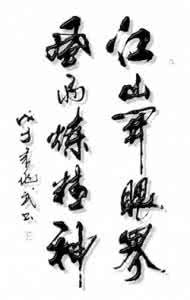 江山开眼界
风雨炼精神
戊子
书